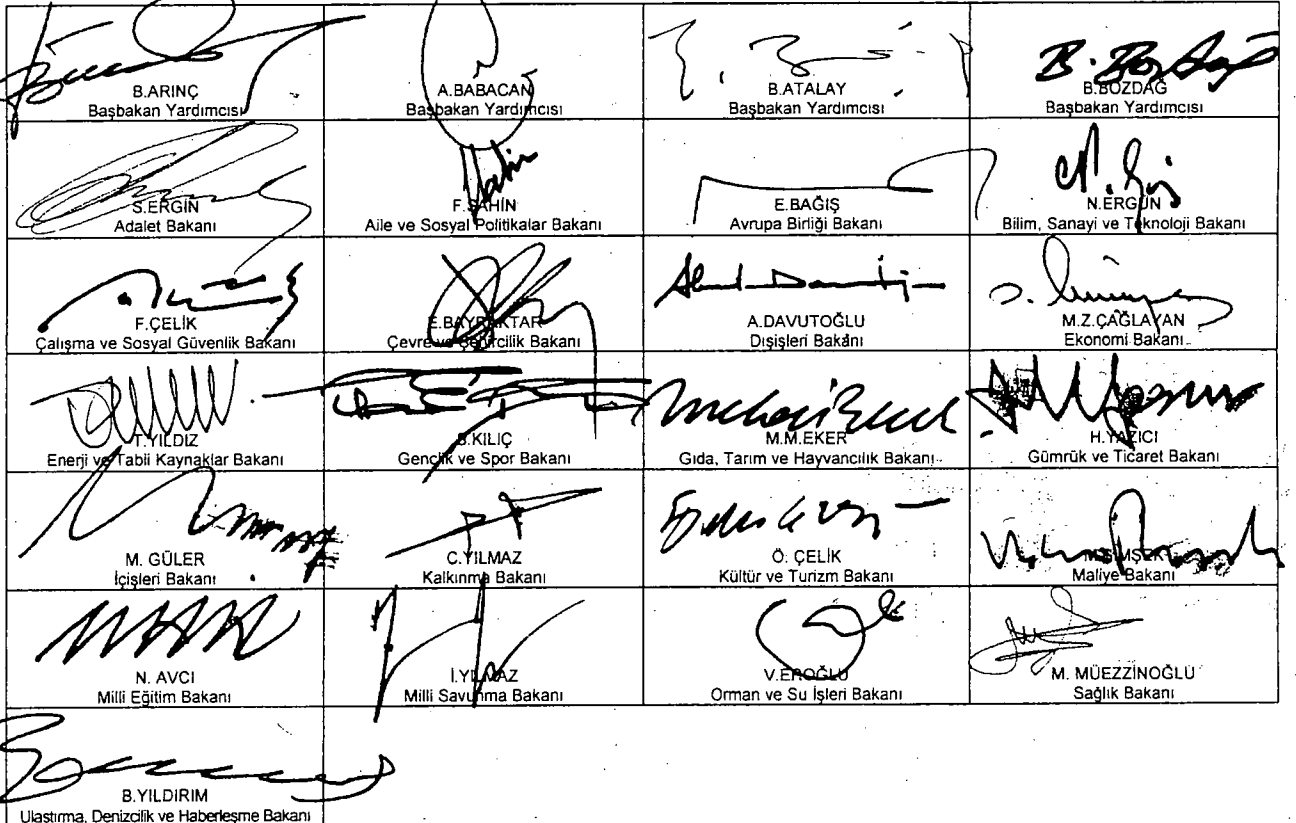 B.ARINÇ
Başbakan Yardımcısı
A.BABACAN
Başbakan Yardımcısı
B.ATALAY
Başbakan Yardımcısı
B.BOZDAĞ
Başbakan Yardımcısı
S.ERGİN
Adalet Bakanı
F.ŞAHİN
Aile ve Sosyal Politikalar Bakanı
E.BAĞIŞ
Avrupa Birliği Bakanı
N.ERGÜN
Bilim, Sanayi ve Teknoloji Bakanı
F.ÇELİK
Çalışma ve Sosyal Güvenlik Bakanı
E.BAYRAKTAR
Çevre ve Şehircilik Bakanı
A.DAVUTOĞLU
Dışişleri Bakanı
M.Z.ÇAĞLAYAN
Ekonomi Bakanı
T.YILDIZ
Enerji ve Tabii Kaynaklar Bakanı
S.KILIÇ
Gençlik ve Spor Bakanı
M.M.EKER
Gıda, Tarım ve Hayvancılık Bakanı
H.YAZICI
Gümrük ve Ticaret Bakanı
M. GÜLER
İçişleri Bakanı
C.YILMAZ
Kalkınma Bakanı
Ö. ÇELİK
Kültür ve Turizm Bakanı
M.ŞİMŞEK
Maliye Bakanı
N. AVCI
Milli Eğitim Bakanı
İ.YILMAZ
Milli Savunma Bakanı
V.EROĞLU
Orman ve Su İşleri Bakanı
M. MÜEZZİNOĞLU
Sağlık Bakanı
B.YILDIRIM
Ulaştırma, Denizcilik ve Haberleşme Bakanı